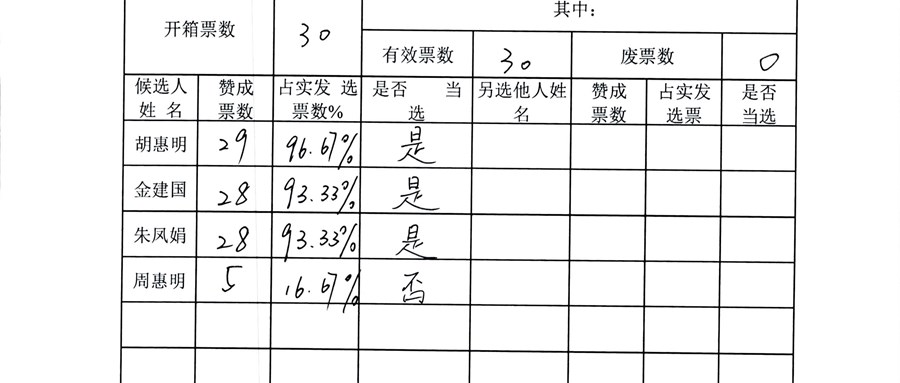 其中：
开箱票数 30
有效票数 30 废票数 0
候选人 赞成 占实发 选 是否 当 另选他人姓 赞成 占实发 是否
姓 名 票数 票数% 选 名 票数 选票 当选
胡惠明 29 96.67% 是
金建国 28 93.33% 是
朱凤娟 28 93.33% 是
周惠明 5 16.67% 否